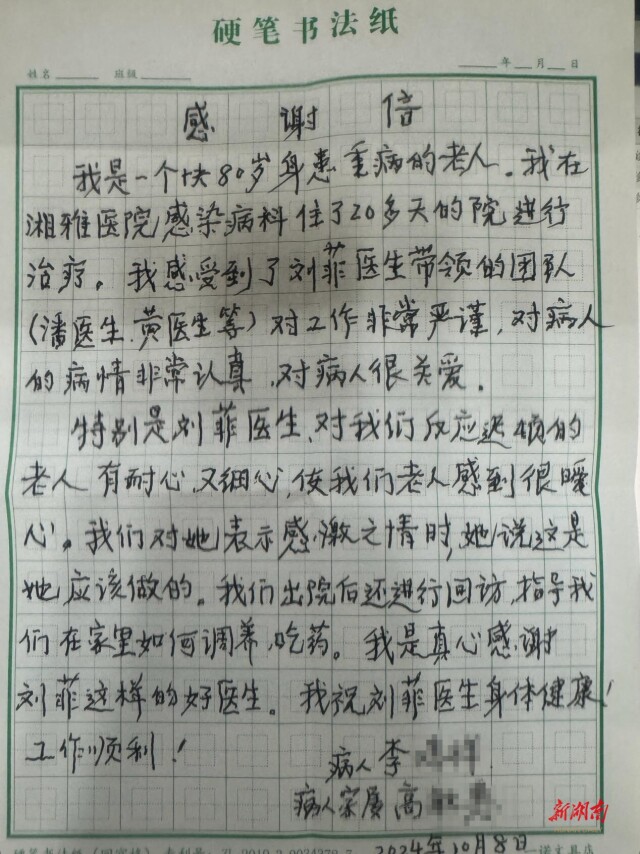 硬笔书法纸
姓名 班级 年 月 日
感谢信
我是一个快80岁身患重病的老人。我在
湘雅医院感染病科住了20多天的院进行
治疗。我感受到了刘菲医生带领的团队
(潘医生.黄医生等)对工作非常严谨,对病人
的病情非常认真,对病人很关爱。
特别是刘菲医生,对我们反应迟顿的
老人有耐心,又细心,使我们老人感到很暖
心。我们对她表示感激之情时,她说这是
她应该做的。我们出院后还进行回访,指导我
们在家里如何调养,吃药。我是真心感谢
刘菲这样的好医生。我祝刘菲医生身体健康!
工作顺利!
病人 李
病人家属 高
新湖南
2024年10月8日
硬笔书法纸 专利号:ZL 2010 2 0034270.7 一诺文具店